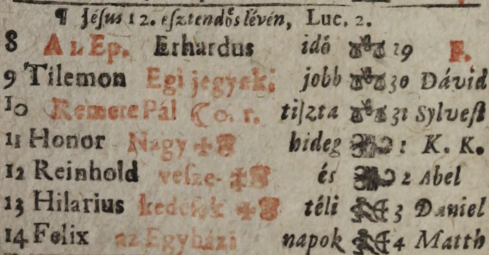 ¶ Jésus 12. esztendős lévén, Luc. 2.
8 A 1. Ep. Erhardus idő 29 F.
9 Tilemon Egi jegyek: jobb 30 Dávid
10 Remete Pál ☾ 0. r. tiszta 31 Sylvest
11 Honor Nagy hideg 1 K. K.
12 Reinhold vesze- és 2 Abel
13 Hilarius kedések téli 3 Daniel
14 Felix az Egyházi napok 4 Matth